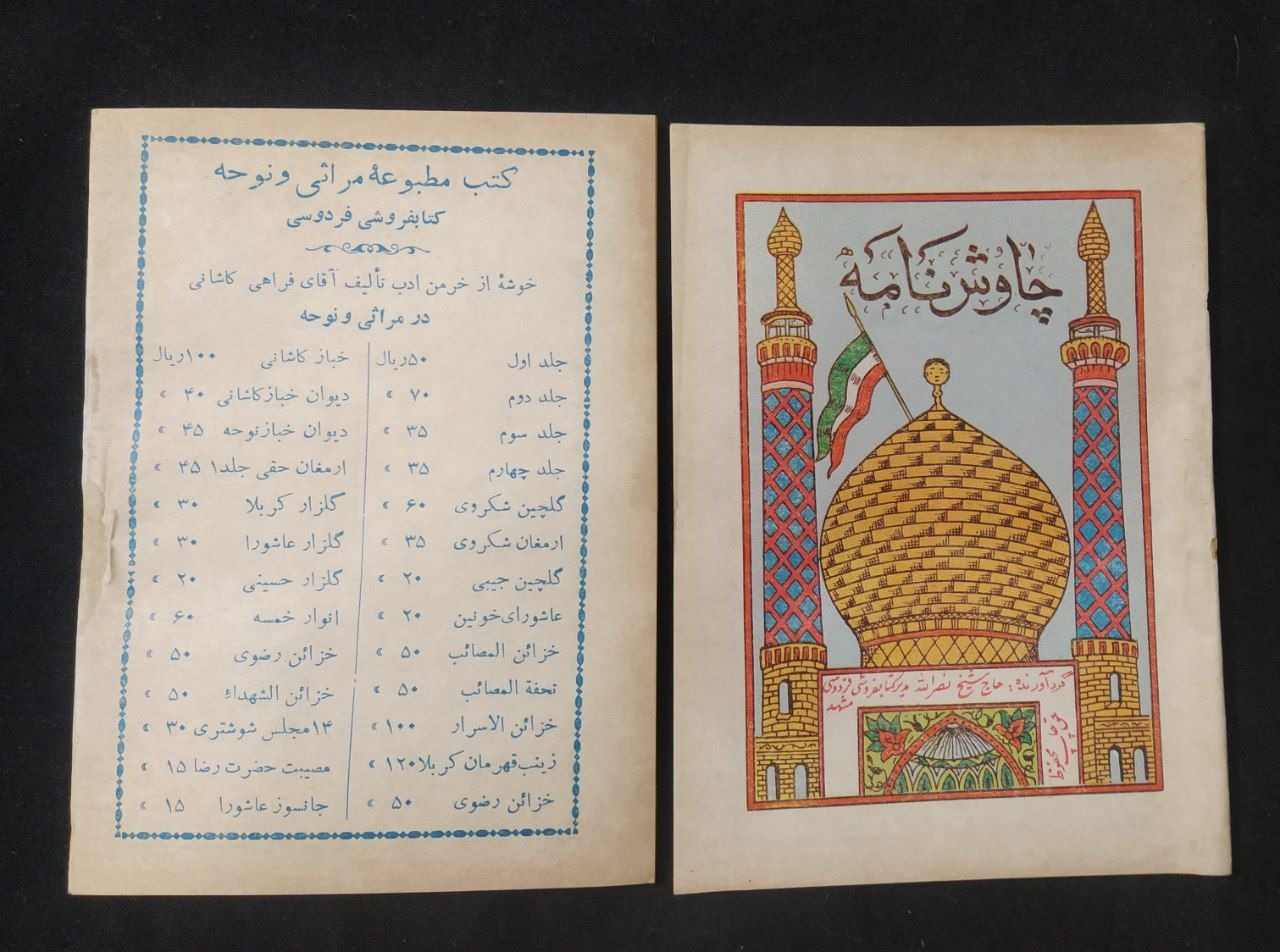 کتب مطبوعهٔ مراثی و نوحه
کتابفروشی فردوسی
خوشهٔ از خرمن ادب تألیف آقای فراهی کاشانی
در مراثی و نوحه
جلد اول ۵۰ ریال
جلد دوم ۷۰ »
جلد سوم ۳۵ »
جلد چهارم ۳۵ »
گلچین شکروی ۶۰ »
ارمغان شکروی ۳۵ »
گلچین جیبی ۲۰ »
عاشورای خونین ۲۰ »
خزائن المصائب ۵۰ »
تحفة المصائب ۵۰ »
خزائن الاسرار ۱۰۰ »
زینب قهرمان کربلا ۱۲۰ »
خزائن رضوی ۵۰ »
خباز کاشانی ۱۰۰ ریال
دیوان خباز کاشانی ۴۰ »
دیوان خباز نوحه ۴۵ »
ارمغان حقی جلد ۱ ۴۵ »
گلزار کربلا ۳۰ »
گلزار عاشورا ۳۰ »
گلزار حسینی ۲۰ »
انوار خمسه ۶۰ »
خزائن رضوی ۵۰ »
خزائن الشهداء ۵۰ »
۱۴ مجلس شوشتری ۳۰ »
مصیبت حضرت رضا ۱۵ »
جانسوز عاشورا ۱۵ »
چاوش نامه
گردآورنده: حاج شیخ نصرالله مدیر کتابفروشی فردوسی
مشهد
حق چاپ محفوظ